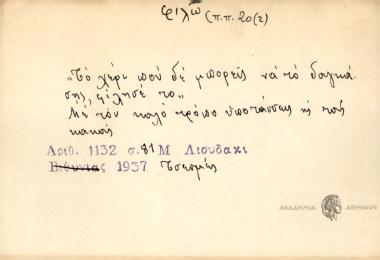 φιλῶ (π.π. 20(2)
"Τὸ χέρι ποὺ δὲ μπορεῖς νὰ τὸ δαγκά-
σῃς, φίλησέ το"
Μὲ τὸν καλὸ τρόπο ὑποτάσσεις κ τοὺς
κακοὺς
Αριθ. 1132 σ. 81 Μ Λιουδάκι
Βιθυνίας 1937 Τσεσμὲς
ΑΚΑΔΗΜΙΑ ΑΘΗΝΩΝ